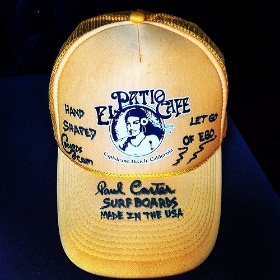 EL PATIO CAFE
Capistrano Beach, California
HAND
SHAPED
LET GO
OF EGO
Paul Carter
SURFBOARDS
MADE IN THE USA